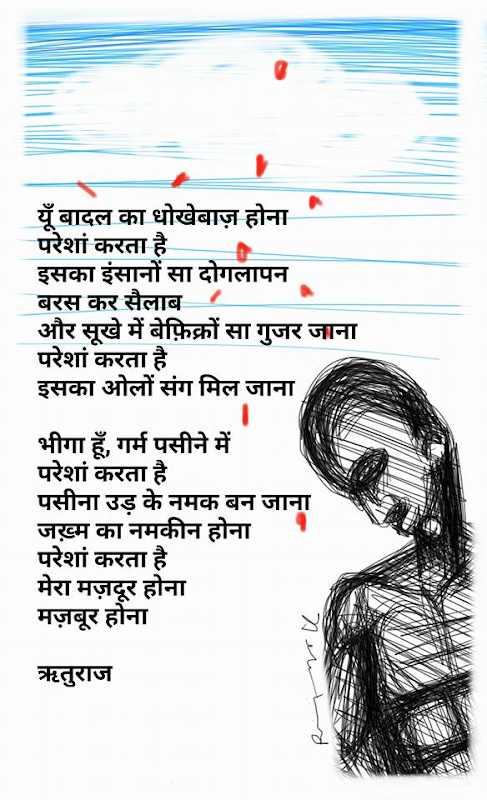 यूँ बादल का धोखेबाज़ होना
परेशां करता है
इसका इंसानों सा दोगलापन
बरस कर सैलाब
और सूखे में बेफ़िक्रों सा गुजर जाना
परेशां करता है
इसका ओलों संग मिल जाना
भीगा हूँ, गर्म पसीने में
परेशां करता है
पसीना उड़ के नमक बन जाना
जख़्म का नमकीन होना
परेशां करता है
मेरा मज़दूर होना
मज़बूर होना
ऋतुराज